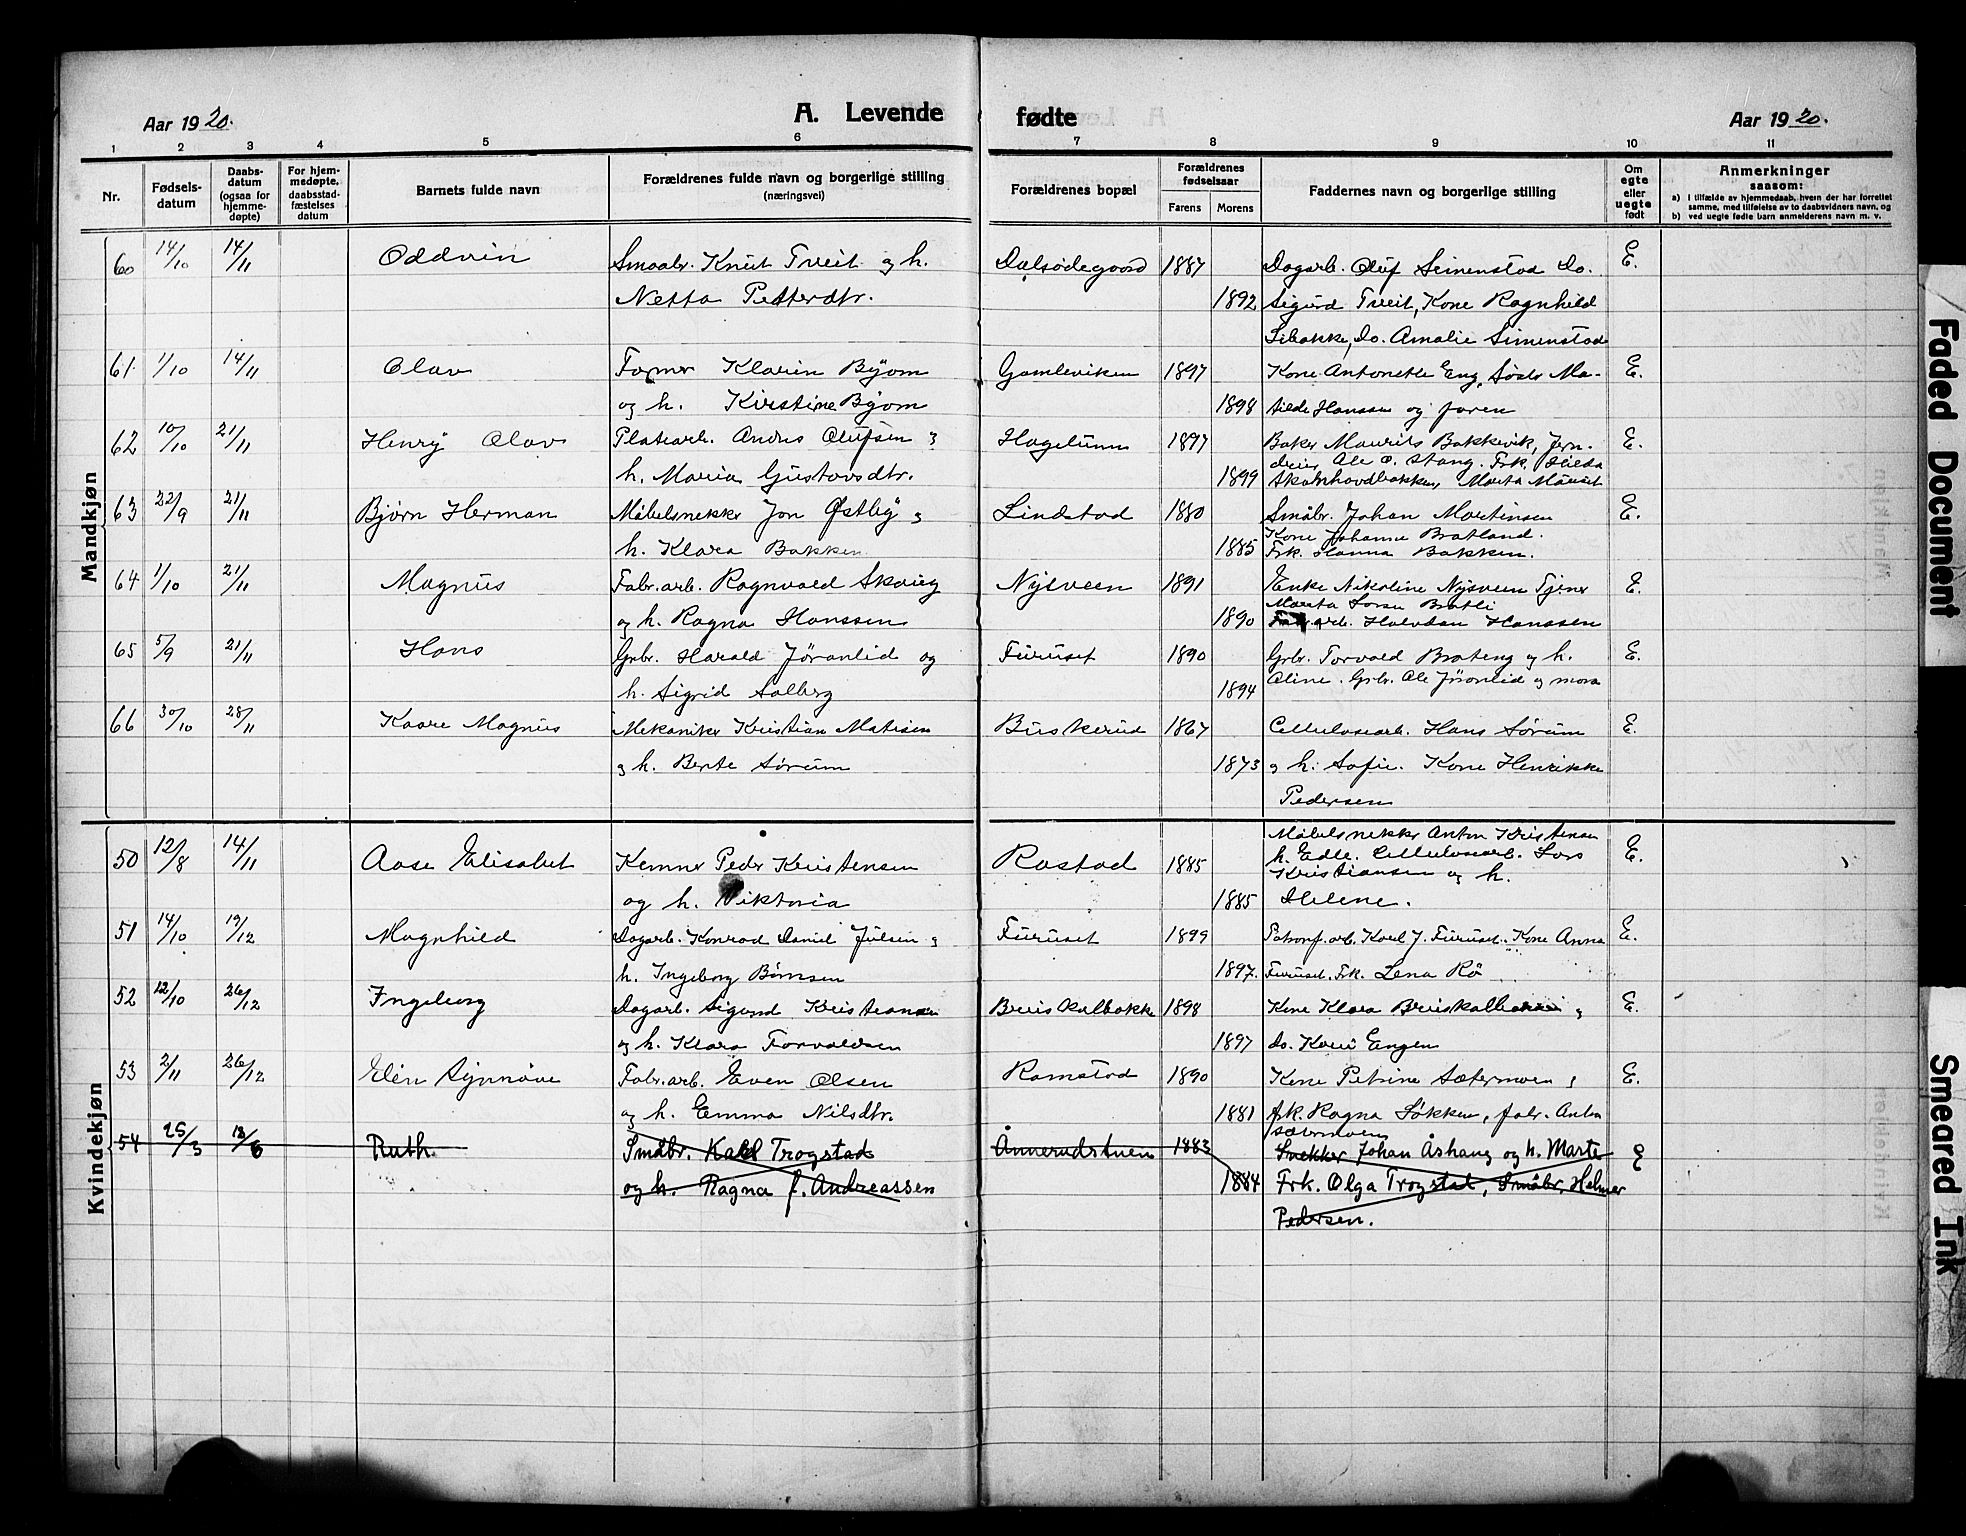 Aar 1920.
A. Levende fødte
Aar 1920.
1 2 3 4 5 6 7 8 9 10 11
Nr.
Fødsels-
datum
Daabs-
datum
(ogsaa for
hjemme-
døpte)
For hjem-
medøpte,
daabsstad-
fæstelses
datum
Barnets fulde navn
Forældrenes fulde navn og borgerlige stilling
(næringsvei)
Forældrenes bopæl
Forældrenes
fødselsaar
Farens Morens
Faddernes navn og borgerlige stilling
Om
egte
eller
uegte
født
Anmerkninger
saasom:
a) I tilfælde av hjemmedaab, hvem der har forrettet
samme, med tilføielse av to daabsvidners navn, og
b) ved uegte fødte barn anmelderens navn m. v.
Mandkjøn
60 14/10 14/11 Oddvin Smaabr. Knut Tveit og h. Dalsødegaard 1887 Dagarb. Oluf Simenstad Do. E.
Netta Petterdtr. 1892 Sigurd Tveit, Kone Ragnhild
Libakke, Do. Amalie Simenstad
61 1/10 14/11 Olav Former Klarin Byom Gamleviken 1897 Kone Antonette Eng, Søstr Ma- E.
og h. Kirstine Byom 1898 tilde Hanssen og faren
62 10/10 21/11 Henry Olav Platearb. Anders Olufsen og Hagelunn 1897 Baker Maurits Bakkevik, Jern- E.
dreier Ole O. Stang. Frk. Hilda
h. Maria Gustavsdtr. 1899 Skomhovdbakken, Marta
63 22/9 21/11 Bjørn Herman Møbelsnekker Jon Østby og Lindstad 1880 Småbr. Johan Martinsen E.
Kone Johanne Bratland.
h. Klara Bakken 1885 Frk. Hanna Bakken.
64 1/10 21/11 Magnus Fabr.arb. Ragnvald Skaug Nysveen 1891 Enke Nikoline Nysveen Tjener E.
Marta Bratli
og h. Ragna Hanssen 1890 Fabr.arb. Halvdan Hanssen
65 5/9 21/11 Hans Grbr. Harald Jøranlid og Furuset 1890 Grbr. Torvald Brateng og h. E.
h. Sigrid Solberg 1894 Aline. Grbr. Ole Jøranlid og mora
66 30/10 28/11 Kaare Magnus Mekaniker Kristian Matisen Buskerud 1867 Cellulosearb. Hans Sørum E.
og h. Berte Sørum 1873 og h. Sofie. Kone Henrikke
Pedersen
Kvindekjøn
50 12/8 14/11 Aase Elisabet Kemner Peder Kristensen Rastad 1885 Møbelsnekker Anton Kristensen E.
h. Edle. Cellulosearb. Lars
Kristiansen og h.
og h. Viktoria 1885 Helene.
51 14/10 19/12 Magnhild Dagarb. Konrad Daniel Julsen og Furuset 1899 Patronf.arb. Karl J. Furuset. Kone Anna E.
h. Ingeborg Bømsen 1897. Furuset. Frk. Lena Rø
52 12/10 26/12 Ingeborg Dagarb. Sigurd Kristiansen Bruskalbakke 1898 Kone Klara Bruskalbakken og E.
og h. Klara Torvaldsen 1897 do. Kari Engen
53 2/11 26/12 Elin Synnøve Fabr.arb. Even Olsen Ramstad 1890 Kone Petrine Sætermoen og E.
og h. Emma Nilsdtr. 1881 frk. Ragna Løkken, fabr. Anton
Sætermoen
54 25/3 13/6 Ruth. Småbr. Karl Trogstad Ånnerudstuen 1883 Snekker Johan Åshaug og h. Marte E
og h. Ragna f. Andreassen 1884 Frk. Olga Trogstad, Småbr. Helmer
Pedersen.
Faded Document
Smeared Ink